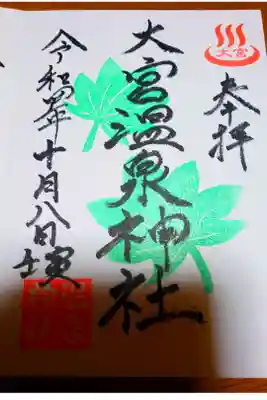 大宮
奉拝
大宮温泉神社
令和四年十月八日